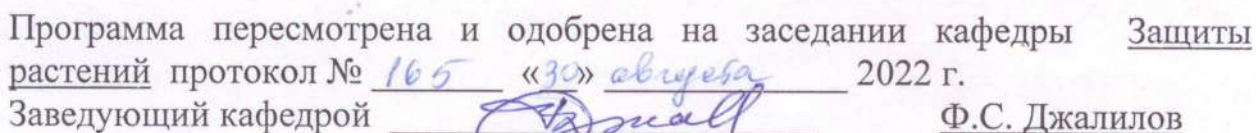 Программа пересмотрена и одобрена на заседании кафедры Защиты
растений протокол № 165 «30» августа 2022 г.
Заведующий кафедрой Ф.С. Джалилов